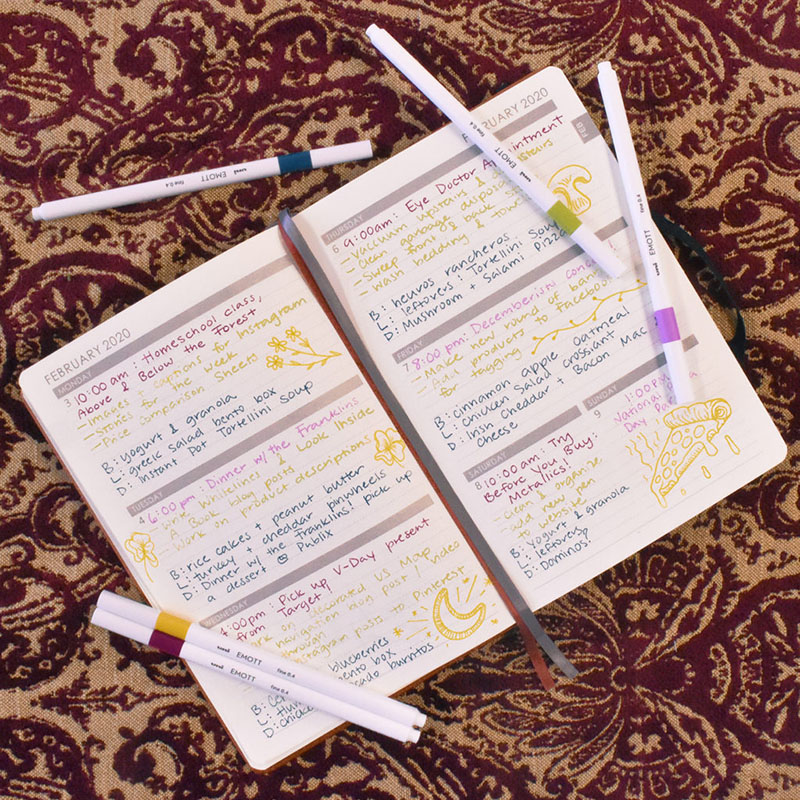 FEBRUARY 2020
MONDAY
3
10:00 am: Homeschool class,
Above & Below the Forest
- Images & captions for Instagram
- Stories for the week
- Price Comparison Sheets
B: yogurt & granola
L: greek salad bento box
D: Instant Pot Tortellini Soup
TUESDAY
4
6:00 pm: Dinner w/ the Franklins
Whitelines & Look Inside
A Book blog posts
- Work on product descriptions
B: rice cakes + peanut butter
L: turkey + cheddar pinwheels
D: Dinner w/ the Franklins! pick up
a dessert @ Publix
WEDNESDAY
4:00pm: Pick up V-Day present
from Target!
on decorated US Map
navigation blog post / video
through
Instagram posts to Pinterest
blueberries
bento box
D: burritos
FEBRUARY 2020
FEB
THURSDAY
6
9:00am: Eye Doctor Appointment
- Vacuum upstairs &
- Clean garbage disposal
- Sweep front & back
- Wash bedding & towels
B: heuvos rancheros
L: leftovers: Tortellini Soup
D: Mushroom + Salami Pizza
FRIDAY
7
8:00 pm: Decemberists concert!
- Make new round of
- Add products to Facebook
for tagging
B: cinnamon apple oatmeal
L: chicken salad crossiant
D: Irish Cheddar + Bacon Mac
Cheese
SATURDAY
8
10:00 am: Try
Before You Buy:
Metallics!
- clean & organize
- add new pen
to website
B: Yogurt & granola
L: leftovers
D: Dominos!
SUNDAY
9
1:00pm
National
Day
uni EMOTT fine 0.4
uni EMOTT fine 0.4
uni EMOTT
uni EMOTT fine 0.4
uni EMOTT fine 0.4